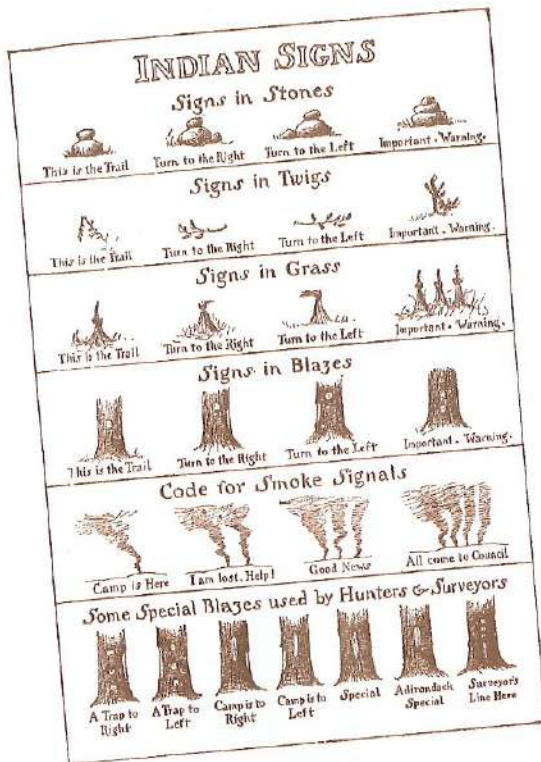 INDIAN SIGNS
Signs in Stones
This is the Trail
Turn to the Right
Turn to the Left
Important. Warning.
Signs in Twigs
This is the Trail
Turn to the Right
Turn to the Left
Important. Warning.
Signs in Grass
This is the Trail
Turn to the Right
Turn to the Left
Important. Warning.
Signs in Blazes
This is the Trail
Turn to the Right
Turn to the Left
Important. Warning.
Code for Smoke Signals
Camp is Here
I am lost. Help!
Good News
All come to Council
Some Special Blazes used by Hunters & Surveyors
A Trap to
Right
A Trap to
Left
Camp is to
Right
Camp is to
Left
Special
Adirondack
Special
Surveyor's
Line Here